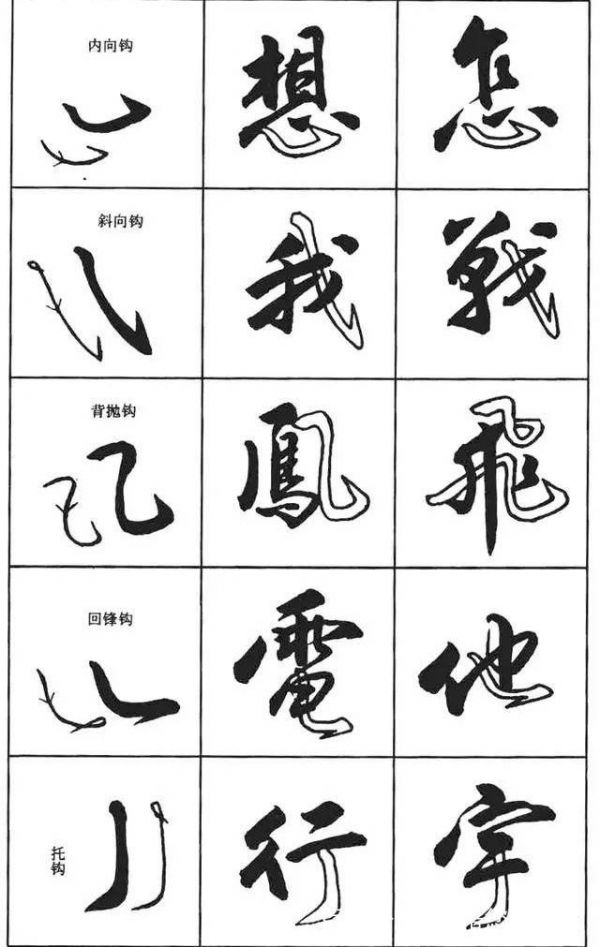 内向钩
想 怎
斜向钩
我 戰
背抛钩
鳳 飛
回锋钩
電 他
托钩
行 宇